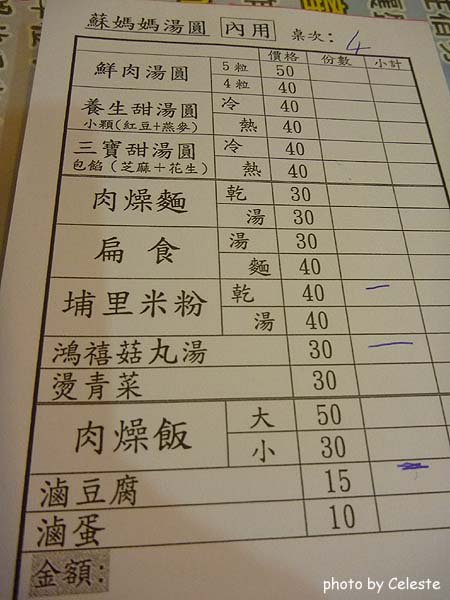 蘇媽媽湯圓 內用 桌次：4
價格 份數 小計
鮮肉湯圓 5粒 50
4粒 40
養生甜湯圓 冷 40
小顆(紅豆+燕麥) 熱 40
三寶甜湯圓 冷 40
包餡(芝麻+花生) 熱 40
肉燥麵 乾 30
湯 30
扁食 湯 30
麵 40
埔里米粉 乾 40 一
湯 40
鴻禧菇丸湯 30 一
燙青菜 30
肉燥飯 大 50
小 30
滷豆腐 15
滷蛋 10
金額：
photo by Celeste